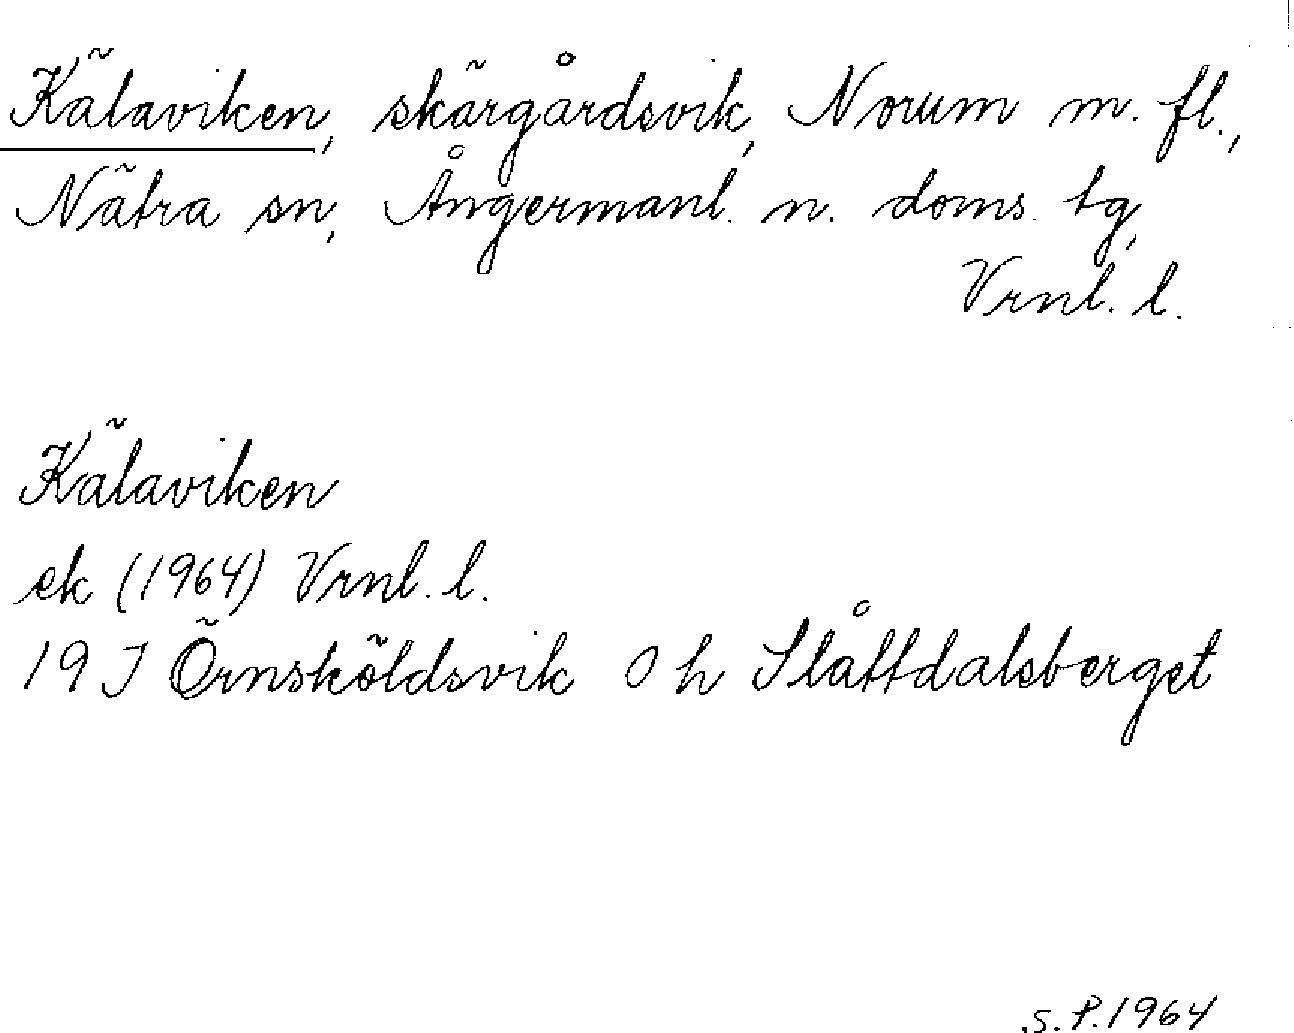 Kälaviken, skärgårdsvik, Norum m. fl.,
Nätra sn, Ångermanl. n. doms. tg,
Vrnl. l.
Kälaviken
ek (1964) Vrnl. l.
19 J Örnsköldsvik 0 h Slåttdalsberget
S. P. 1964